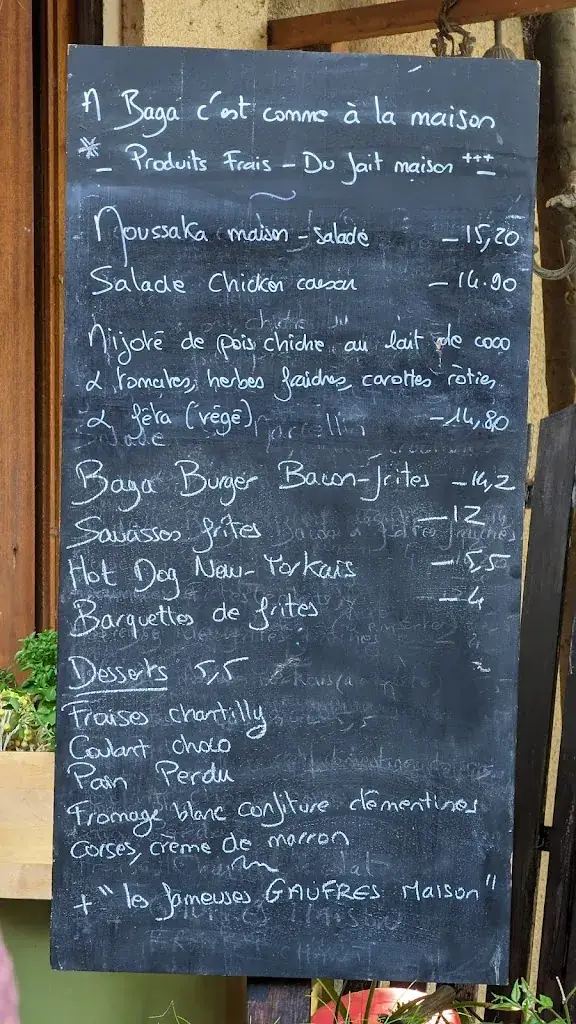 A Baga c'est comme à la maison
* - Produits Frais - Du fait maison +++ -
Moussaka maison - salade - 15,20
Salade Chicken caesar - 14.90
Mijoté de pois chiche au lait de coco
& tomates, herbes fraîches, carottes rôties
& féta (végé) - 14,80
Baga Burger Bacon-frites - 14,2
Saucisses frites - 12
Hot Dog New-Yorkais - 5,5
Barquettes de frites - 4
Desserts 5,5
Fraises chantilly
Coulant choco
Pain Perdu
Fromage blanc confiture clémentines
corses, crème de marron
+ "les fameuses GAUFRES Maison"